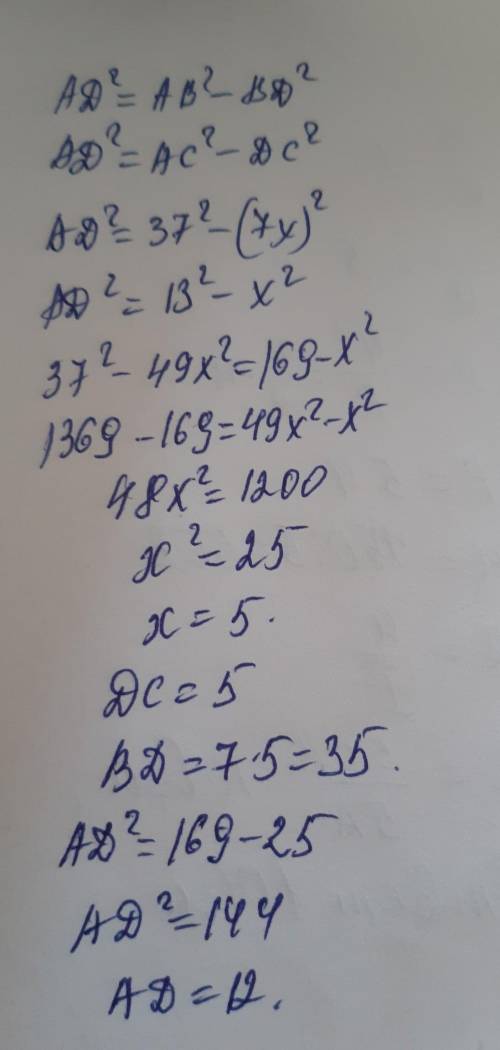 AD² = AB² - BD²
AD² = AC² - DC²
AD² = 37² - (7x)²
AD² = 13² - x²
37² - 49x² = 169 - x²
1369 - 169 = 49x² - x²
48x² = 1200
x² = 25
x = 5.
DC = 5
BD = 7·5 = 35.
AD² = 169 - 25
AD² = 144
AD = 12.